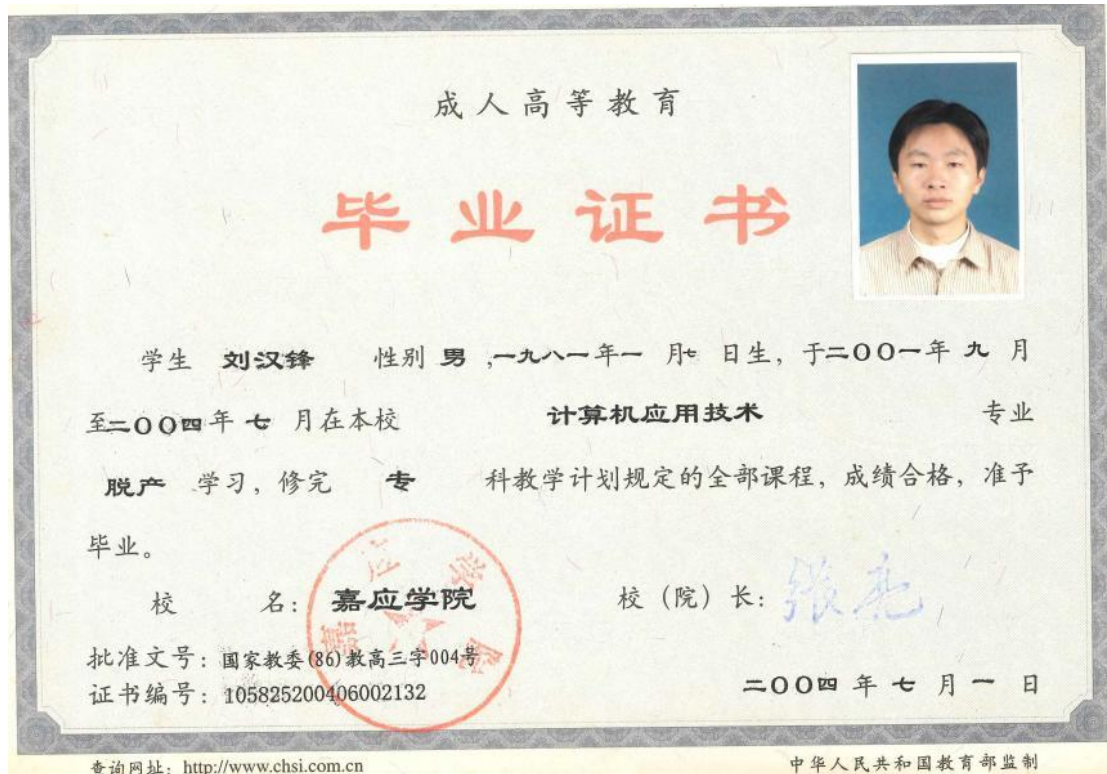 成人高等教育
毕业证书
学生 刘汉锋 性别 男 ,一九八一年一 月七 日生, 于二00一年 九 月
至二00四年 七 月在本校 计算机应用技术 专业
脱产 学习, 修完 专 科教学计划规定的全部课程, 成绩合格, 准予
毕业。
校 名: 嘉应学院 校 (院) 长: 张亮
嘉应学院
批准文号: 国家教委(86)教高三字004号
证书编号: 105825200406002132 二00四 年 七 月 一 日
查询网址: http://www.chsi.com.cn 中华人民共和国教育部监制